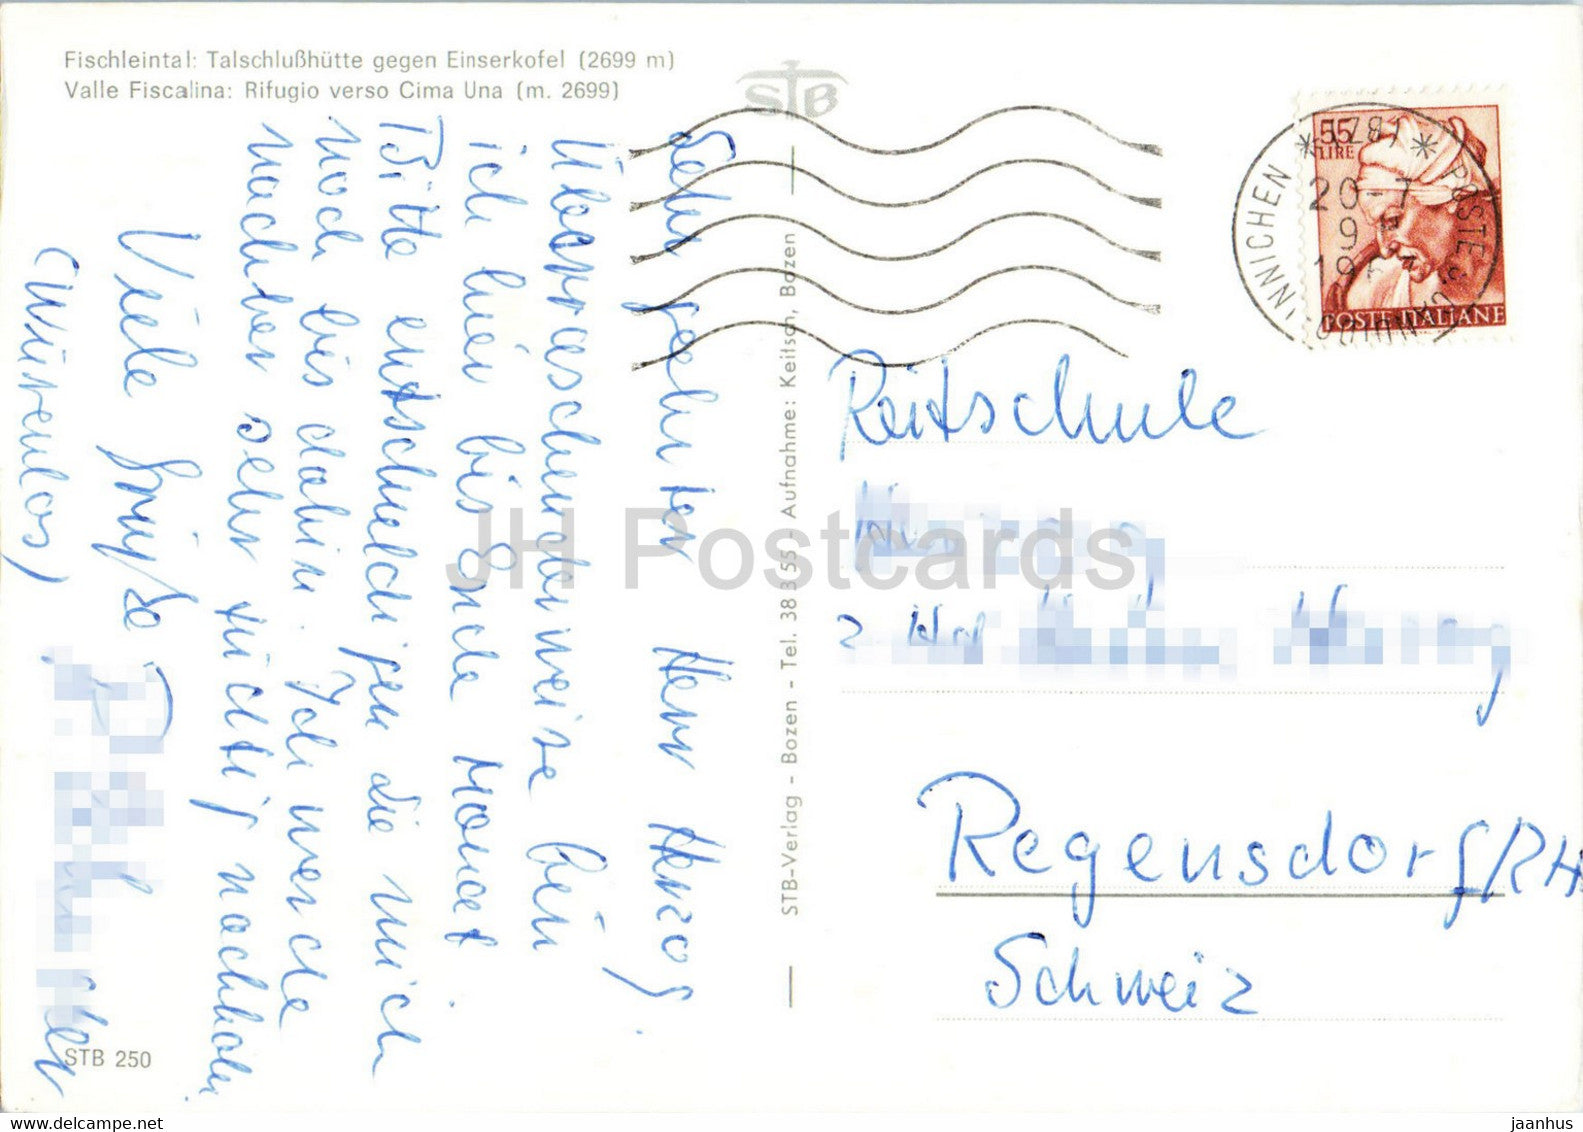 Fischleintal: Talschlußhütte gegen Einserkofel (2699 m)
Valle Fiscalina: Rifugio verso Cima Una (m. 2699)
STB
Sehr geehrter Herr Herzog.
Überraschenderweise bin
ich hier bis Ende Monat.
Bitte entschuldigen Sie mich
noch bis dahin. Ich werde
nachher sehr tüchtig nachholen
Viele Grüsse
(Würenlos)
STB 250
STB-Verlag - Bozen - Tel. 38 3 55 - Aufnahme: Keitsch, Bozen
55
LIRE
POSTE ITALIANE
INNICHEN * (BZ) * POSTE
20-7
9
Reitschule
Regensdorf/ZH
Schweiz
JH Postcards
jaanhus
www.delcampe.net